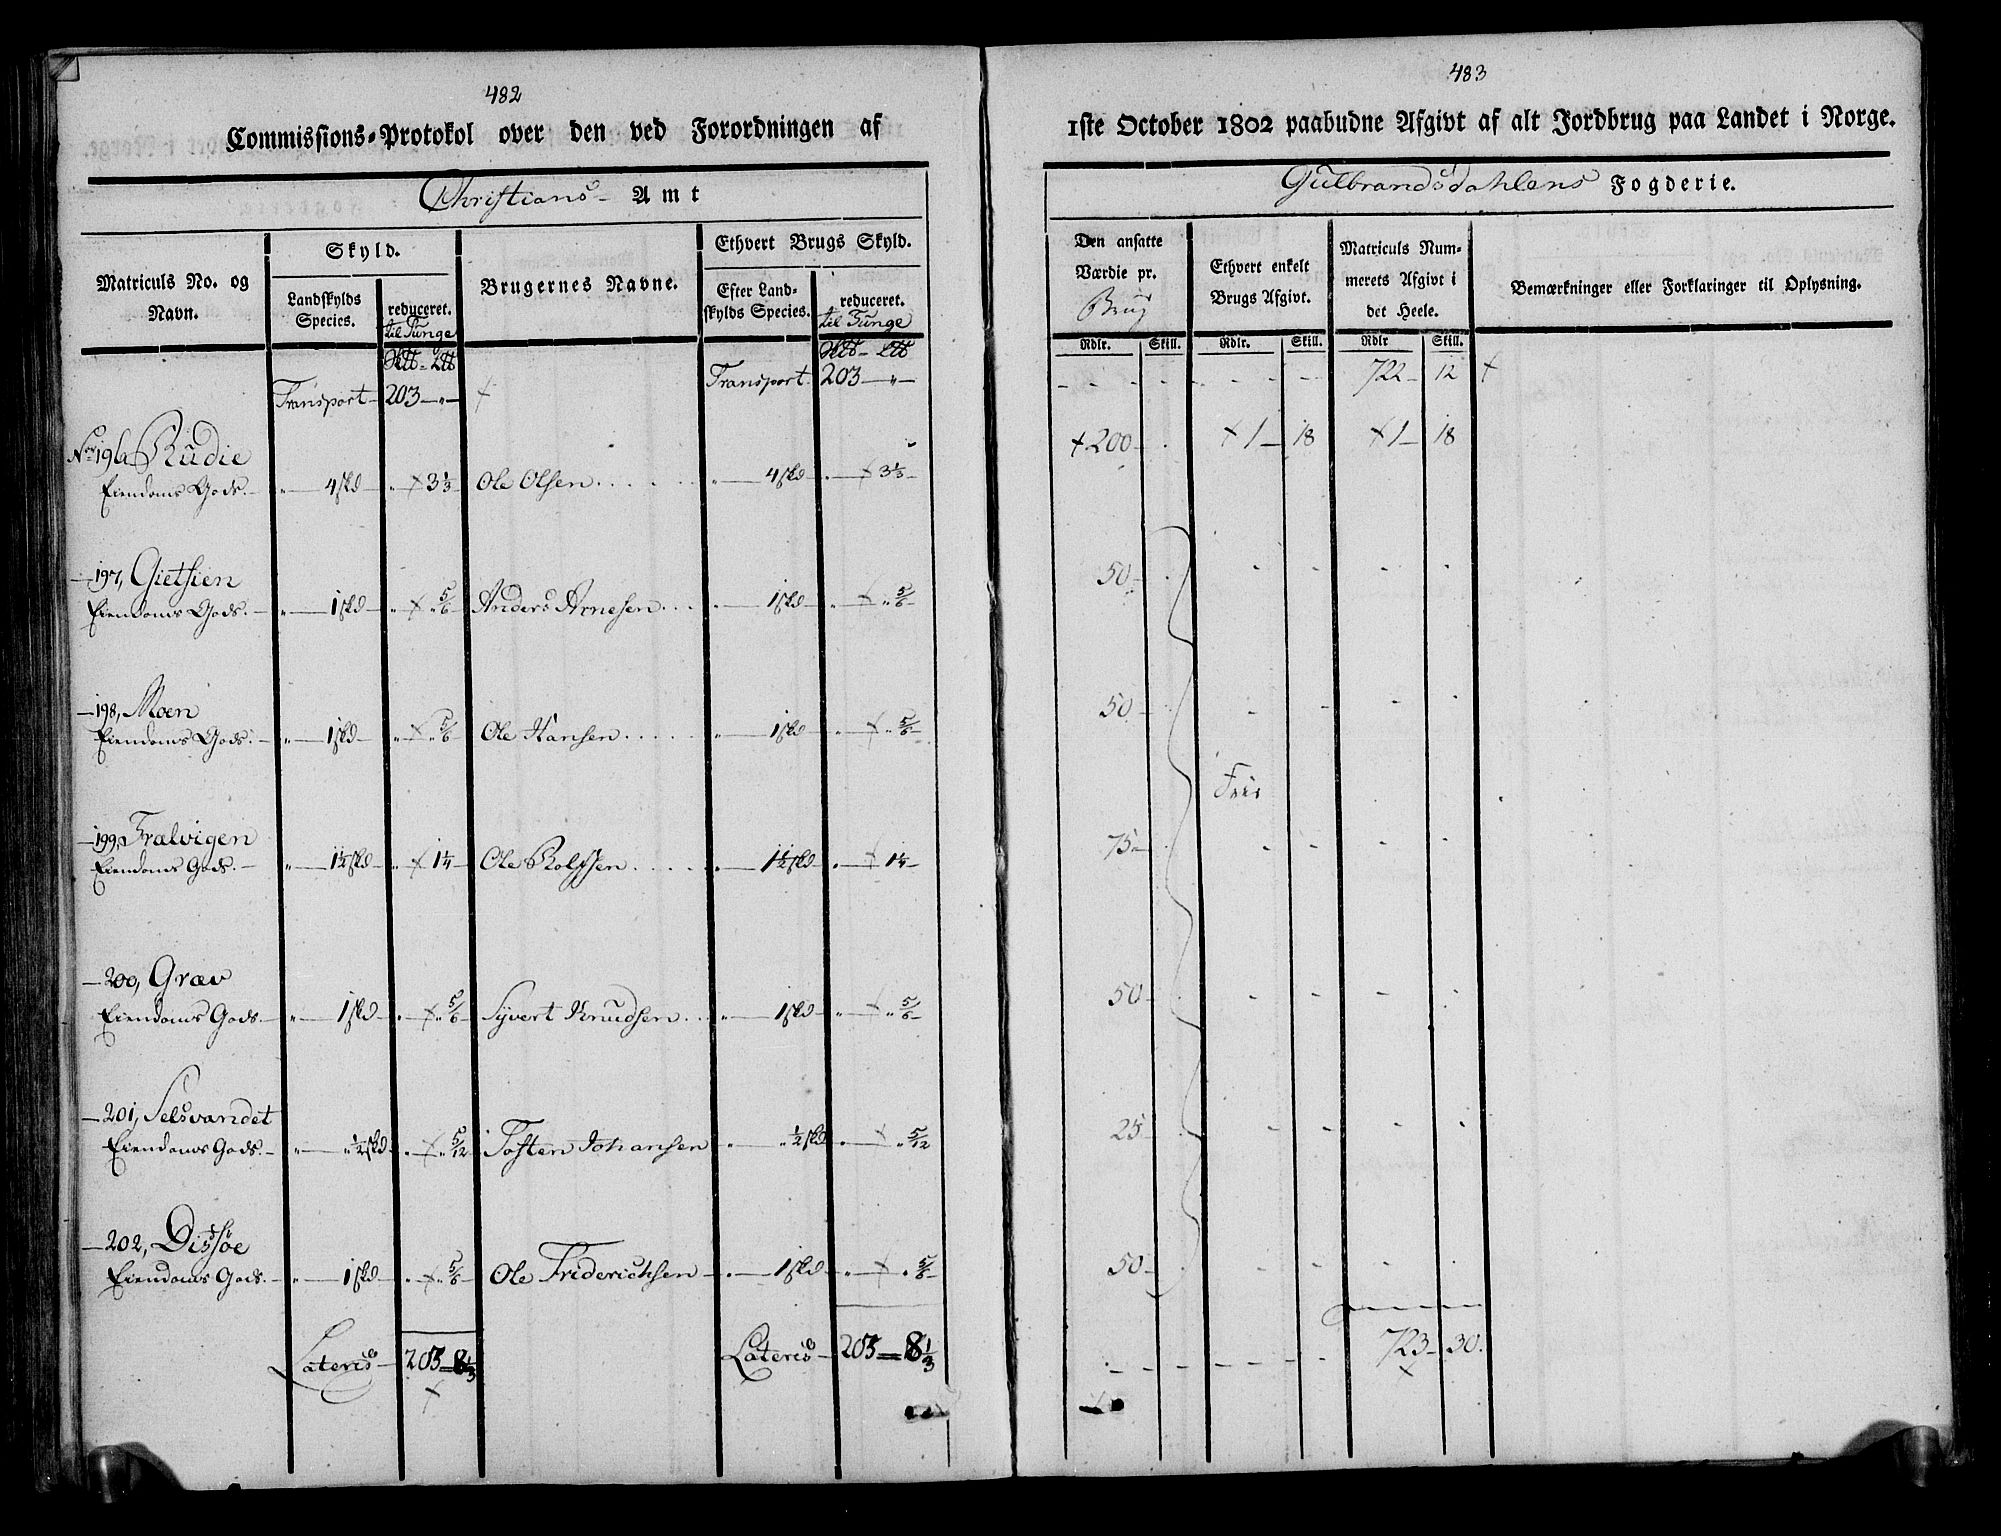 482
Commissions-Protokol over den ved Forordningen af
Christians- Amt
Matriculs No. og Navn.
Skyld.
Landskylds Species.
reduceret. til Tunge
Brugernes Navne.
Ethvert Brugs Skyld.
Efter Landskylds Species.
reduceret. til Tunge
Transport 203 — „ —
Transport 203 — „ —
No 196, Rudie
Eiendoms Gods. — „ — 4 skd — „ — 3 1/3 Ole Olsen . . . . „ — 4 skd — „ — 3 1/3
— 197, Gietsien
Eiendoms Gods. — „ — 1 skd — „ — „ 5/6 Anders Arnesen . . . „ — 1 skd — „ — „ 5/6
— 198, Moen
Eiendoms Gods. — „ — 1 skd — „ — „ 5/6 Ole Hansen . . . . „ — 1 skd — „ — „ 5/6
— 199, Trælvigen
Eiendoms Gods. — „ — 1½ skd — „ — 1¼ Ole Rolfsen . . . . „ — 1½ skd — „ — 1¼
— 200, Græv
Eiendoms Gods. — „ — 1 skd — „ — „ 5/6 Syvert Knudsen . . „ — 1 skd — „ — „ 5/6
— 201, Selsvandet
Eiendoms Gods. — „ — „ ½ skd — „ — „ 5/12 Tosten Johansen „ — „ ½ skd — „ — „ 5/12
— 202, Dissøe
Eiendoms Gods. — „ — 1 skd — „ — „ 5/6 Ole Friderichsen — „ — 1 skd — „ — „ 5/6
Lateris — 203 — 8 1/3
Lateris — 203 — 8 1/3
483
1ste October 1802 paabudne Afgivt af alt Jordbrug paa Landet i Norge.
Gulbrandsdahlens Fogderie.
Den ansatte Værdie pr. Brug
Ethvert enkelt Brugs Afgivt.
Matriculs Nummerets Afgivt i det Heele.
Bemærkninger eller Forklaringer til Oplysning.
Rdlr. Skill. Rdlr. Skill. Rdlr Skill.
722 — 12
200 — 1 — 18 1 — 18
50 —
50 —
Frie
75 —
50 —
25 —
50 —
723 — 30.